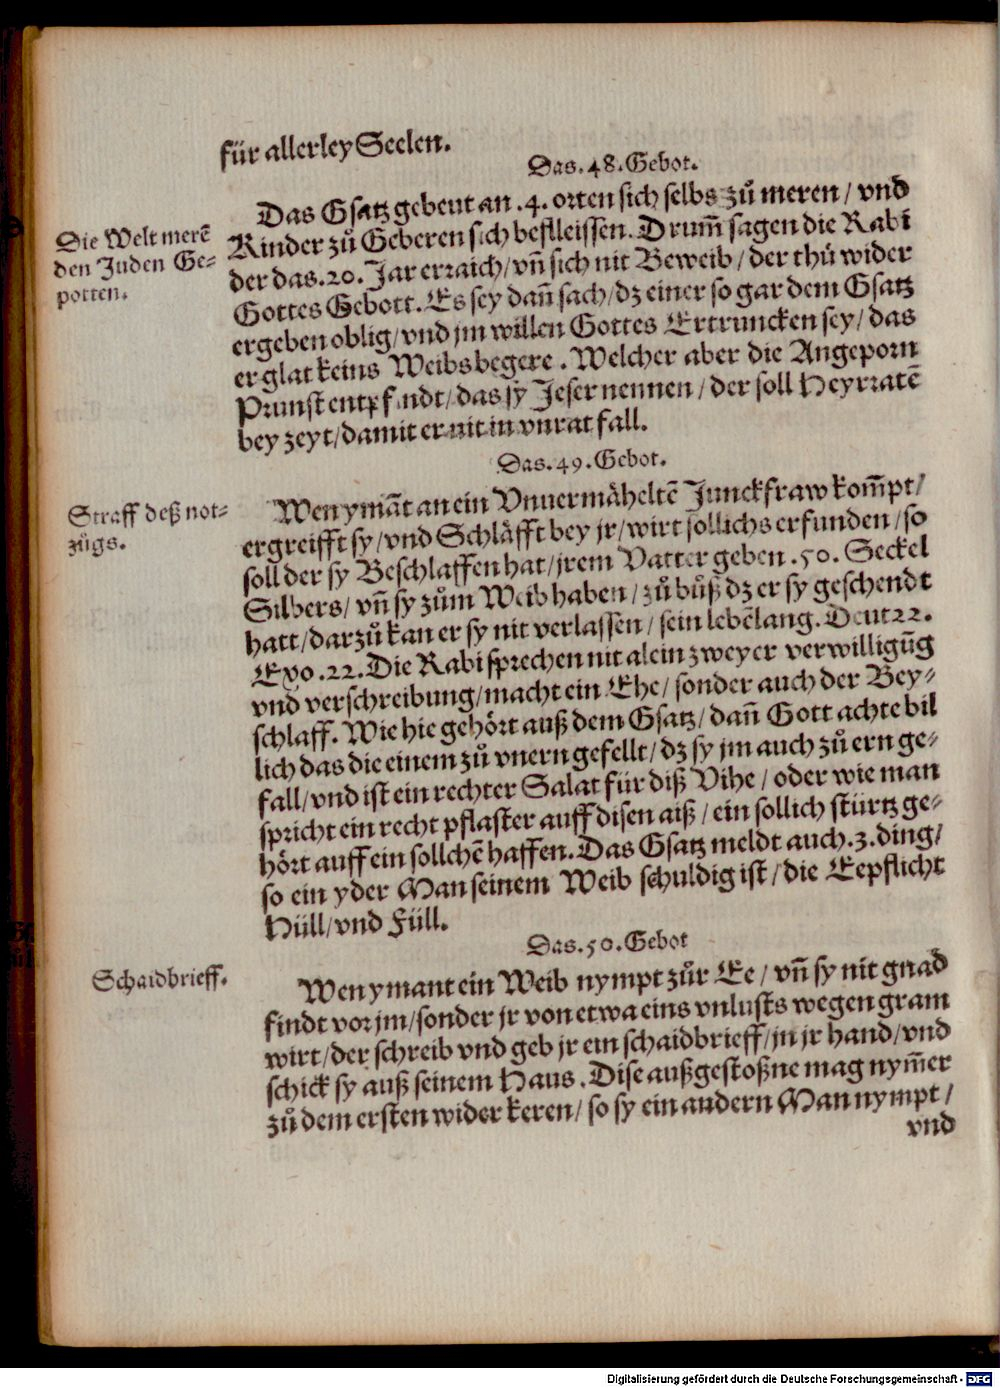 für allerley Seelen.
Das .48. Gebot.
Das Gsatz gebeut an .4. orten sich selbs zů meren / vnd
Die Welt merē
den Juden Ge-
potten.
Kinder zů Geberen sich befleissen. Drum̄ sagen die Rabi
der das .20. Jar erraich / vn̄ sich nit Beweib / der thů wider
Gottes Gebott. Es sey dan̄ sach / dz einer so gar dem Gsatz
ergeben oblig / vnd jm willen Gottes Ertruncken sey / das
er glat keins Weibs begere. Welcher aber die Angeporn
Prunst entpfindt / das sy Jeser nennen / der soll Heyrratē
bey zeyt / damit er nit in vnrat fall.
Das .49. Gebot.
Straff deß not-
zůgs.
Wen ymāt an ein Vnuermåheltē Junckfraw kom̄pt /
ergreifft sy / vnd Schläfft bey jr / wirt sollichs erfunden / so
soll der sy Beschlaffen hat / jrem Vatter geben .50. Seckel
Silbers / vn̄ sy zům Weib haben / zů bůß dz er sy geschendt
hatt / darzů kan er sy nit verlassen / sein lebēlang. Deut 22.
Exo. 22. Die Rabi sprechen nit alein zweyer verwilligūg
vnd verschreibung / macht ein Ehe / sonder auch der Bey-
schlaff. Wie hie gehört auß dem Gsatz / dan̄ Gott achte bil
lich das die einem zů vnern gefellt / dz sy jm auch zů ern ge-
fall / vnd ist ein rechter Salat für diß Vihe / oder wie man
spricht ein recht pflaster auff disen aiß / ein sollich stürtz ge-
hört auff ein sollchē haffen. Das Gsatz meldt auch .3. ding /
so ein yder Man seinem Weib schuldig ist / die Eepflicht
Hüll / vnd Füll.
Das .50. Gebot
Schaidbrieff.
Wen ymant ein Weib nympt zůr Ee / vn̄ sy nit gnad
findt vor jm / sonder jr von etwa eins vnlusts wegen gram
wirt / der schreib vnd geb jr ein schaidbrieff / jn jr hand / vnd
schick sy auß seinem Haus. Dise außgestoßne mag nym̄er
zů dem ersten wider keren / so sy ein andern Man nympt /
vnd
Digitalisierung gefördert durch die Deutsche Forschungsgemeinschaft - DFG